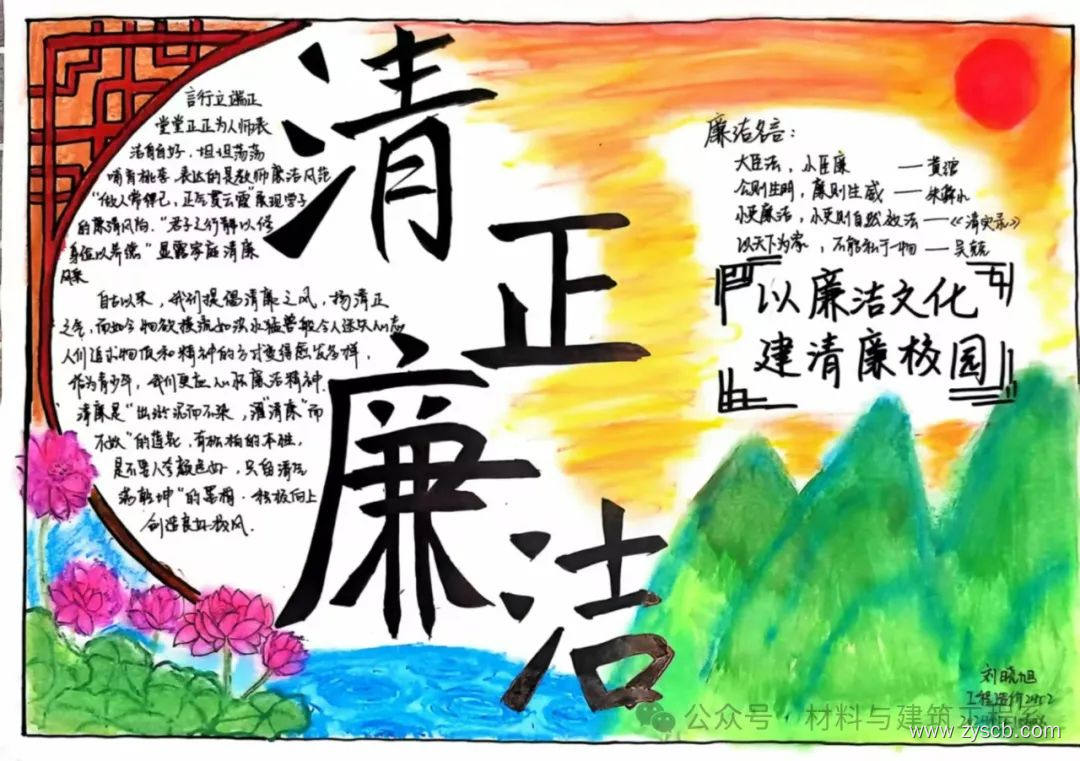 清正廉洁
言行立端正
堂堂正正为人师表
洁身自好，坦坦荡荡
哺育桃李 表达的是教师廉洁风范
"做人常律己，正气贯云霄"展现学子
的廉清风尚."君子之行静以修
身俭以养德"显露家庭清廉
风采
自古以来，我们提倡清廉之风，扬清正
之气，而如今物欲横流如洪水猛兽般令人迷失心志
人们追求物质和精神的方式变得愈发多样，
作为青少年，我们更应心怀廉洁精神.
清廉是"出淤泥而不染，濯"清廉"而
不妖"的莲花，有松柏的本性，
是不要人夸颜色好，只留清气
满乾坤"的墨梅.积极向上
创造良好校风.
廉洁名言：
大臣法，小臣廉 ——黄瑄
公则生明，廉则生威——朱舜水
小吏廉洁，小吏则自然效法——《清实录》
以天下为家，不能私于一物——吴兢
以廉洁文化
建清廉校园
刘晓旭
工程造价2452
公众号 · 材料与建筑工程系
www.zyscb.com